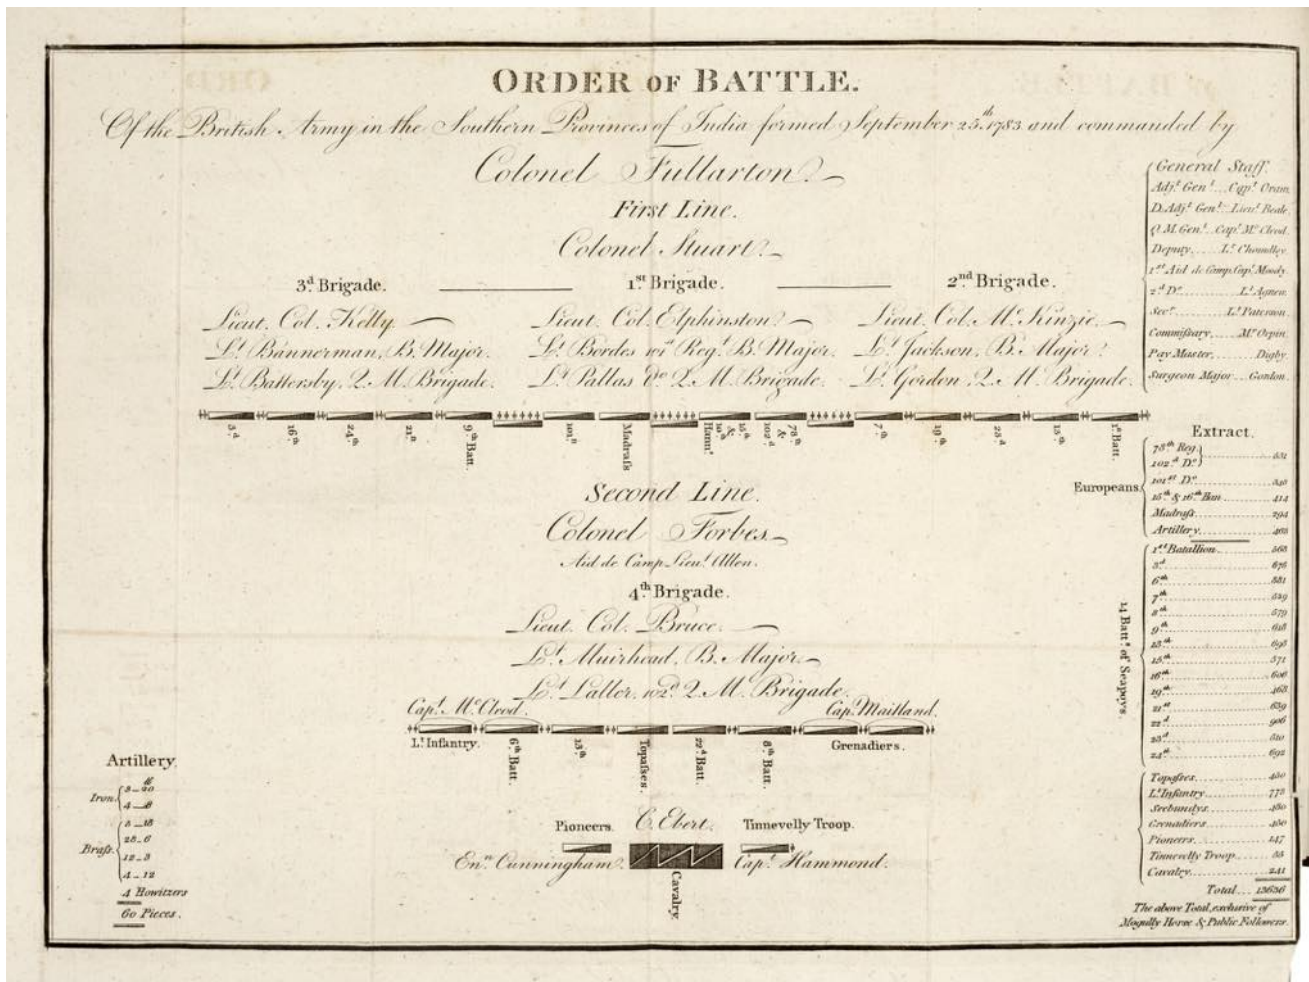 ORDER OF BATTLE.
Of the British Army in the Southern Provinces of India formed September 25th. 1783 and commanded by
Colonel Fullarton.
First Line.
Colonel Stuart.
3d. Brigade.
1st. Brigade.
2nd. Brigade.
Lieut. Col. Kelly.
Lt. Bannerman, B. Major.
Lt. Battersby, Q. M. Brigade.
Lieut. Col. Elphinston.
Lt. Bordes 101st Regt. B. Major.
Lt. Pallas Do. Q. M. Brigade.
Lieut. Col. Mc. Kinzie.
Lt. Jackson, B. Major.
Lt. Gordon, Q. M. Brigade.
3.d
16.th
24.th
21.st
9.th Batt.
101.st
Madrass
15.th & 16.th Hann.s
78.th & 102.d
7.th
19.th
23.d
13.th
1.st Batt.
Second Line.
Colonel Forbes.
Aid de Camp Lieut. Allen.
4th. Brigade.
Lieut. Col. Bruce.
Lt. Muirhead, B. Major.
Lt. Lallor, 102d. Q. M. Brigade.
Capt. Mc. Cleod.
Capt. Maitland.
Lt. Infantry.
6.th Batt.
13.th
Topasses.
22.d Batt.
8.th Batt.
Grenadiers.
Pioneers.
C. Ebert.
Tinnevelly Troop.
Enn. Cunningham.
Capt. Hammond.
Cavalry.
Artillery.
Iron
4
Brass
28_6
12_3
4_12
4 Howitzers
60 Pieces.
General Staff.
Adjt. Genl. Capt. Oram.
D. Adjt. Genl. Lieut. Beale.
Q. M. Genl. Capt. Mc. Cleod.
Deputy Lt. Chomdley.
1st. Aid de Camp, Capt. Moody.
2d. Do. Lt. Agnew.
Secy. Lt. Paterson.
Commissary Mr. Orpin.
Pay Master Digby.
Surgeon Major Gordon.
Extract.
Europeans.
78th Reg.
102d Do.
101st Do.
15th & 16th Han 414
Madrass 294
Artillery
14 Batts. of Seapoys.
1st Batallion 563
3d 676
6th
7th 529
8th 579
9th
13th
15th 571
16th 606
19th 463
21st 639
22d 906
23d
24th 692
Topasses
Lt. Infantry
Seebundys
Grenadiers
Pioneers 147
Tinnevelly Troop
Cavalry 241
Total 13636
The above Total, exclusive of
Mogully Horse & Public Followers.